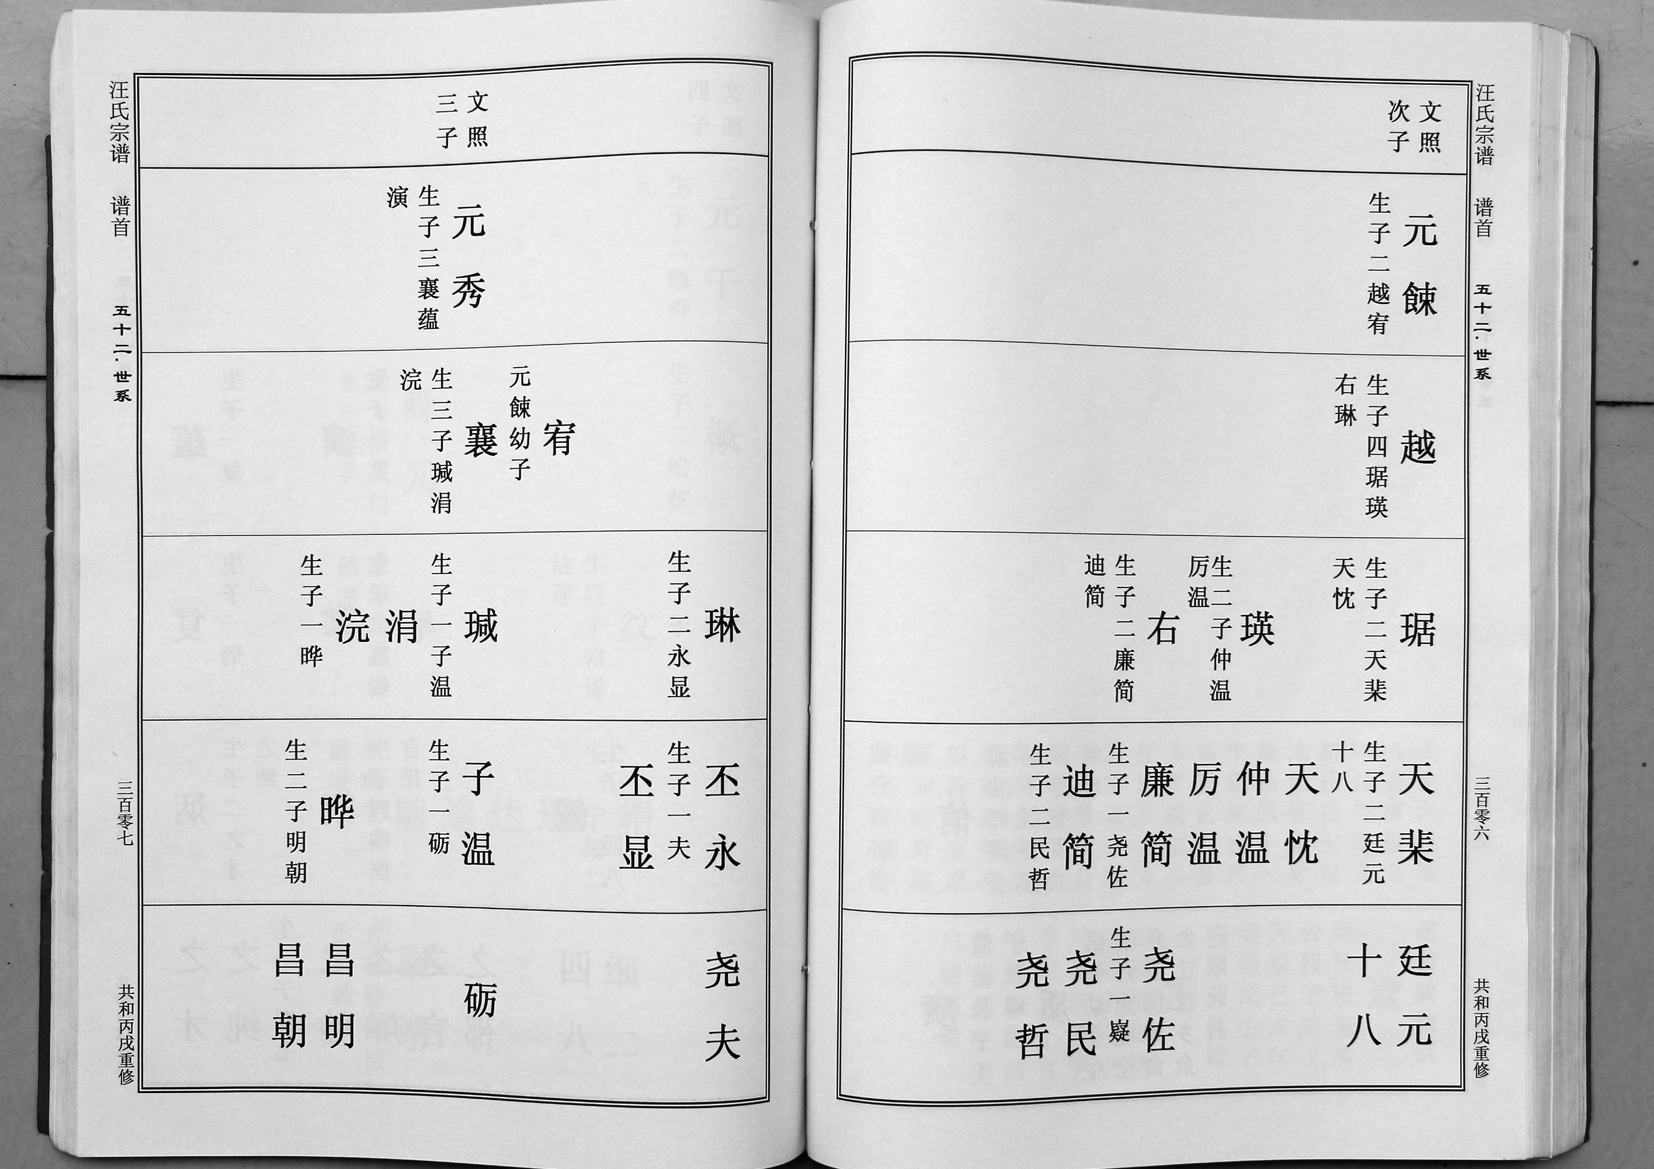 汪氏宗谱 谱首 五十二·世系
三百零六
共和丙戌重修
文照
次子
元餗
生子二越宥
越
生子四琚瑛
右琳
琚
生子二天棐
天忱
瑛
生二子仲温
厉温
右
生子二廉简
迪简
天棐
生子二廷元
十八
天忱
仲温
厉温
廉简
生子一尧佐
迪简
生子二民哲
廷元
十八
尧佐
生子一嶷
尧民
尧哲
文照
三子
元秀
生子三襄蕴
演
宥
元餗幼子
襄
生三子瑊涓
浣
琳
生子二永显
瑊
生子一子温
涓
浣
生子一晔
丕永
生子一夫
丕显
子温
生子一砺
晔
生二子明朝
尧夫
砺
昌明
昌朝
汪氏宗谱 谱首 五十二·世系
三百零七
共和丙戌重修